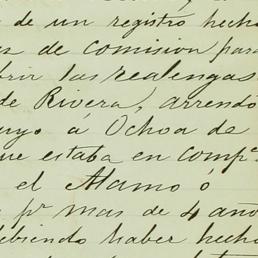 de un registro hecho
as de comision para
brir las realengas
de Rivera, arrendó
suyo á Ochoa de
que estaba en compª
el Alamo ó
pr mas de 4 año
debiendo haber hecho